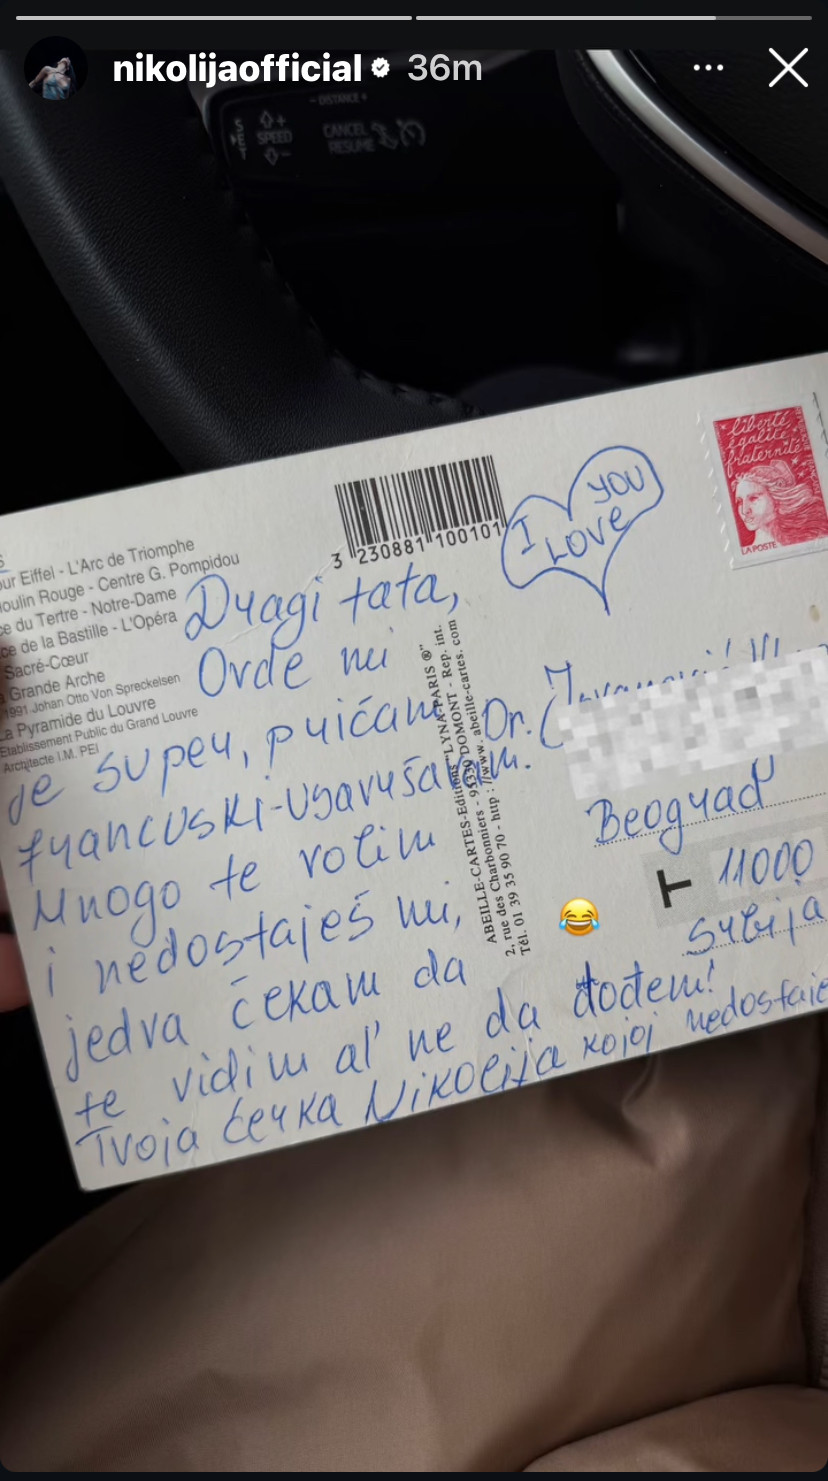 nikolijaofficial 36m
- DISTANCE +
SET
+
SPEED
-
CANCEL
RESUME
our Eiffel - L'Arc de Triomphe
oulin Rouge - Centre G. Pompidou
ce du Tertre - Notre-Dame
ce de la Bastille - L'Opéra
Sacré-Cœur
Grande Arche
1991 Johan Otto Von Spreckelsen
La Pyramide du Louvre
Etablissement Public du Grand Louvre
Architecte I.M. PEI
3 230881 100101
I LOVE YOU
liberté
égalité
fraternité
LA POSTE
Dragi tata,
Ovde mi
je super, pričam
francuski-usavršavam.
Mnogo te volim
i nedostaješ mi,
jedva čekam da
te vidim al' ne da dođem!
Tvoja ćerka Nikolija kojoj nedostaje
ABEILLE-CARTES-Editions "LYNA-PARIS ®"
2, rue des Charbonniers - 95330 DOMONT - Rep. int.
Tél. 01 39 35 90 70 - http : //www. abeille-cartes. com
Dr.
Beograd
T 11000
Srbija
😂